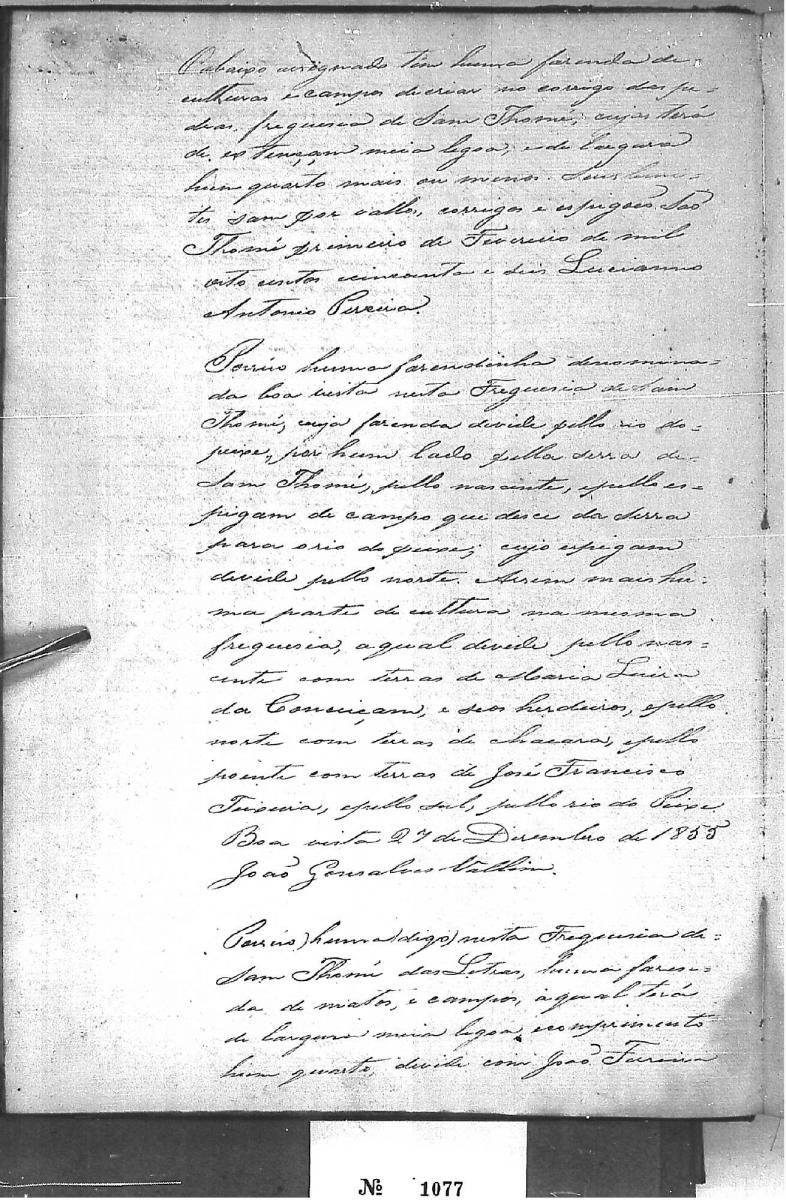 O abaixo assignado tem huma fazenda de
culturas e campos de criar no corrigo das pe-
dras, freguesia de Sam Thomé, cujas terá
de extençam meia legoa, e de largura
hum quarto mais ou menos. Seus limi-
tes sam por vallos, corrigos e espigoẽs. Saõ
Thomé primeiro de Fevereiro de mil
oito centos cincoenta e seis Lucianno
Antonio Pereira.
Possúo huma fazendinha denomina-
da boa vista nesta Freguesia de Sam
Thomé, cuja fazenda divide pello rio do
peixe, por hum lado pella serra de
Sam Thomé, pello nascente, epello es-
pigam de campo que desce da Serra
para o rio do peixe; cujo espigam
devide pello norte. Assim mais hu-
ma parte de cultura na mesma
freguesia, aqual devide pello nas-
cente com terras de Maria Luiza
da Conceiçam, e seos herdeiros, epello
norte com terras de chacara, epello
poente com terras de José Francisco
Teixeira, epello sul, pello rio do Peixe
Boa vista 27 de Dezembro de 1855
Joaõ Gonsalves Vallim.
Possúo) huma (digo) nesta Freguesia de
Sam Thomé das Letras, huma fazen-
da de matos, e campos, aqual terá
de largura meia legoa, ecomprimento
hum quarto, divide com Joaõ Ferreira
Nº 1077